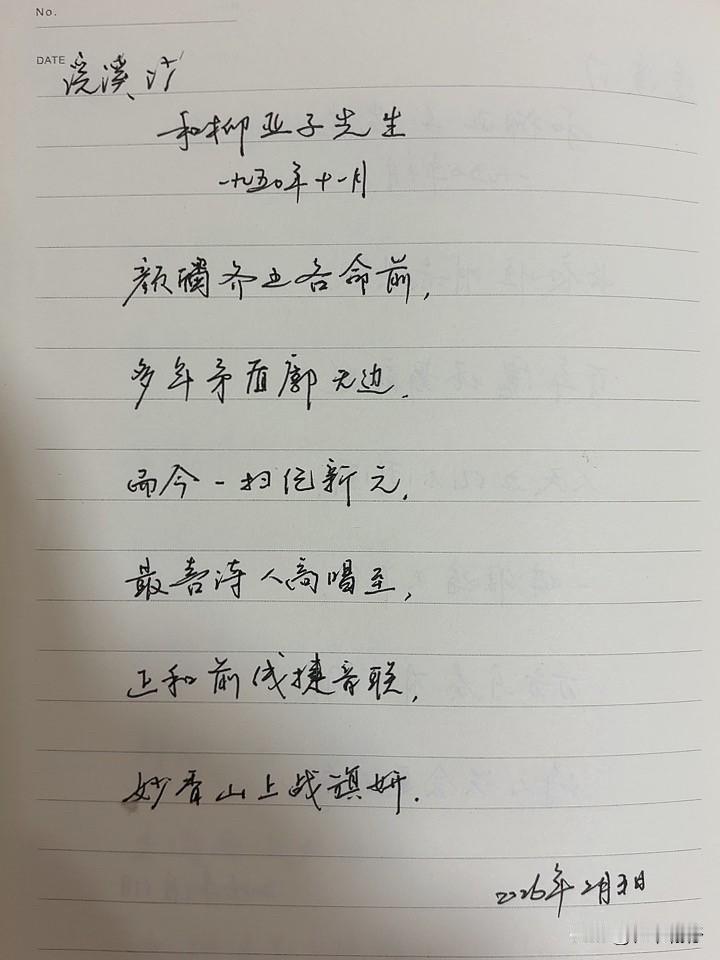 No.
DATE
浣溪沙
和柳亚子先生
一九五〇年十一月
颜斶齐王各命前,
多年矛盾廓无边.
而今一扫纪新元.
最喜诗人高唱至,
正和前线捷音联,
妙香山上战旗妍.
2026年2月5日